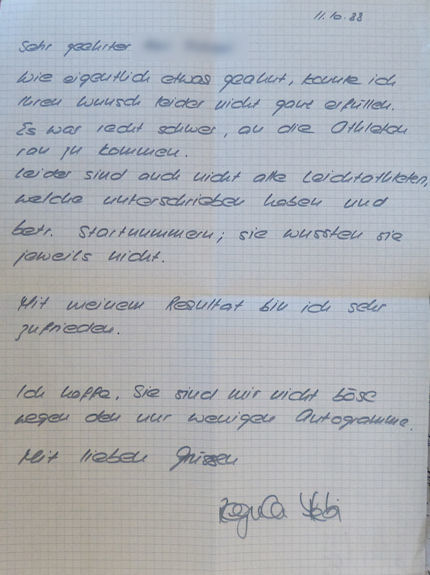 11.10.88
Sehr geehrter
Wie eigentlich etwas geahnt, konnte ich
Ihren Wunsch leider nicht ganz erfüllen.
Es war recht schwer, an die Athleten
ran zu kommen.
Leider sind auch nicht alle Leichtathleten,
welche unterschrieben haben und
betr. Startnummern; sie wussten sie
jeweils nicht.
Mit meinem Resultat bin ich sehr
zufrieden.
Ich hoffe, Sie sind mir nicht böse
wegen den nur wenigen Autogramme.
Mit lieben Grüssen
Regula